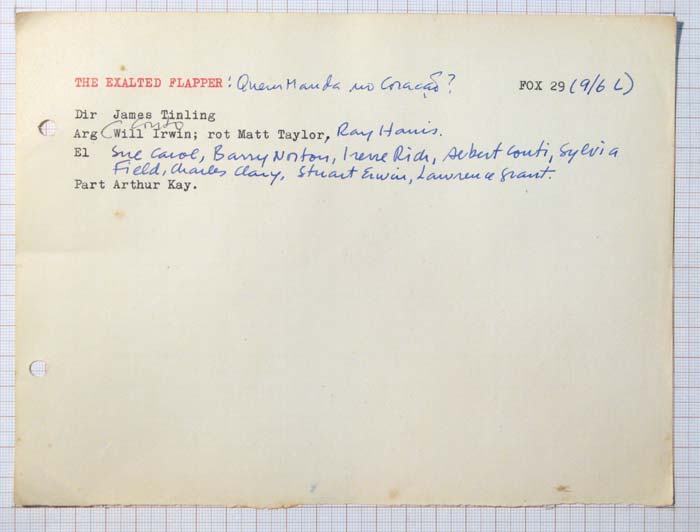 THE EXALTED FLAPPER: Quem Manda no Coração? FOX 29 (9/6 L)
Dir James Tinling
Conto
Arg (Will Irwin; rot Matt Taylor, Ray Harris.
El Sue Carol, Barry Norton, Irene Rich, Albert Conti, Sylvia
Field, Charles Clary, Stuart Erwin, Lawrence Grant.
Part Arthur Kay.